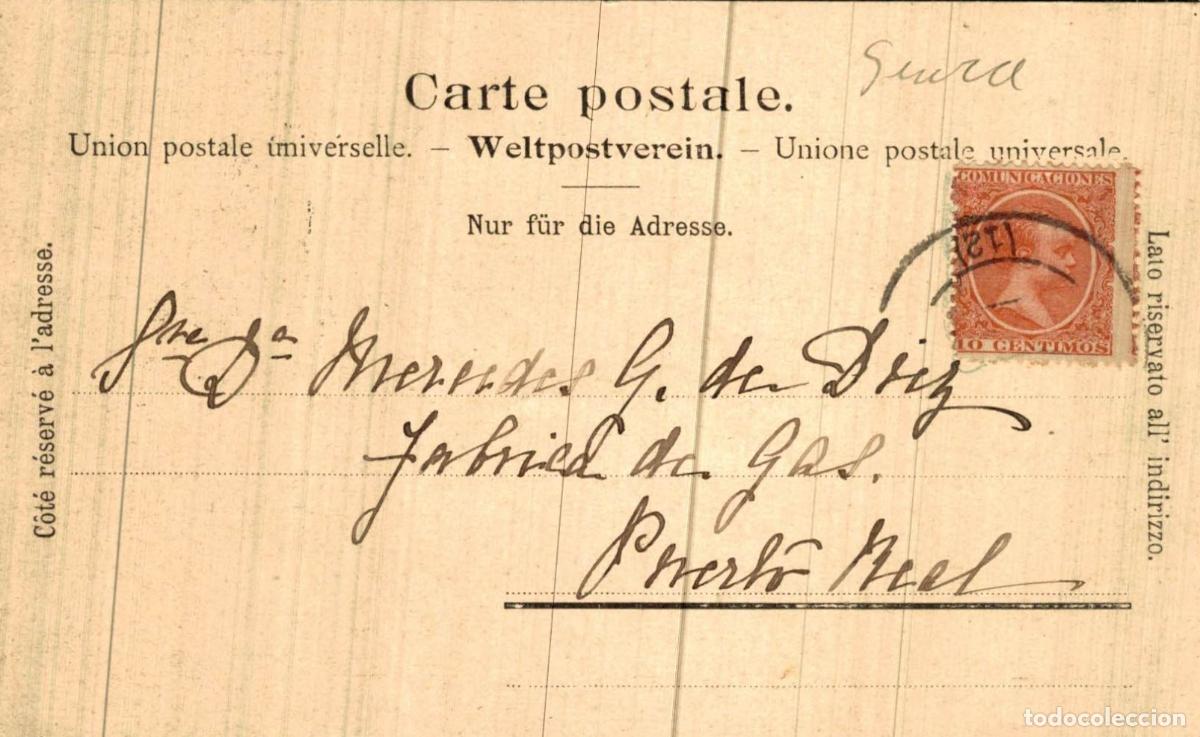 Carte postale.
Union postale universelle. – Weltpostverein. – Unione postale universale.
Nur für die Adresse.
Côté réservé à l'adresse.
Lato riservato all' indirizzo.
COMUNICACIONES
10 CENTIMOS
Sra Da Mercedes G. de Diez
Fabrica de Gas.
Puerto Real
todocoleccion